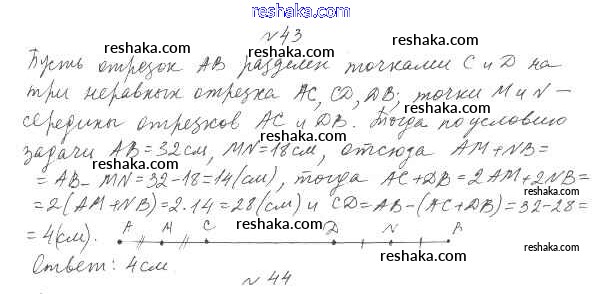 reshaka.com
№43
reshaka.com reshaka.com
Пусть отрезок AB разделен точками C и D на
три неравных отрезка AC, CD, DB; точки M и N –
reshaka.com reshaka.com
середины отрезков AC и DB. Тогда по условию
reshaka.com reshaka.com
задачи AB=32см, MN=18см, отсюда AM+NB=
= AB-MN=32-18=14(см), тогда AC+DB=2AM+2NB=
reshaka.com reshaka.com
=2(AM+NB)=2.14=28(см) и CD=AB-(AC+DB)=32-28=
=4(см). A M C D N B
reshaka.com reshaka.com
Ответ: 4см
reshaka.com
№44